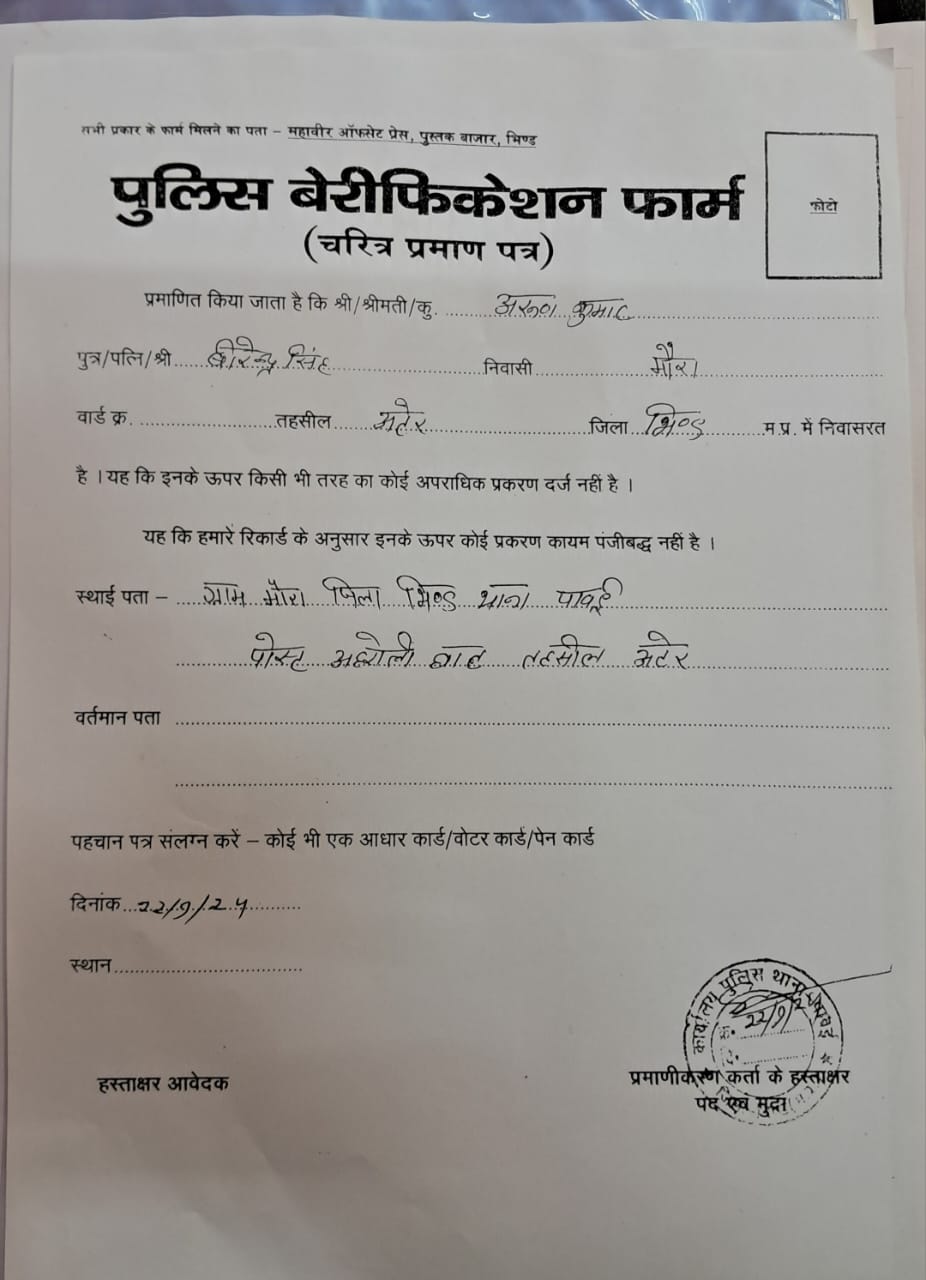 सभी प्रकार के फार्म मिलने का पता – महावीर ऑफसेट प्रेस, पुस्तक बाजार, भिण्ड
पुलिस बेरीफिकेशन फार्म
(चरित्र प्रमाण पत्र)
फोटो
प्रमाणित किया जाता है कि श्री/श्रीमती/कु. अरूण कुमार
पुत्र/पत्नि/श्री बीरेन्द्र सिंह निवासी मौरा
वार्ड क्र. तहसील अटेर जिला भिण्ड म.प्र. में निवासरत
है । यह कि इनके ऊपर किसी भी तरह का कोई अपराधिक प्रकरण दर्ज नहीं है ।
यह कि हमारे रिकार्ड के अनुसार इनके ऊपर कोई प्रकरण कायम पंजीबद्ध नहीं है ।
स्थाई पता – ग्राम मौरा जिला भिण्ड थाना पावई
पोस्ट तहसील अटेर
वर्तमान पता
पहचान पत्र संलग्न करें – कोई भी एक आधार कार्ड/वोटर कार्ड/पेन कार्ड
दिनांक 22/9/24
स्थान
कार्यालय पुलिस थाना
क्र. 22/9/2
दि.
हस्ताक्षर आवेदक
प्रमाणीकरण कर्ता के हस्ताक्षर
पद एवं मुद्रा